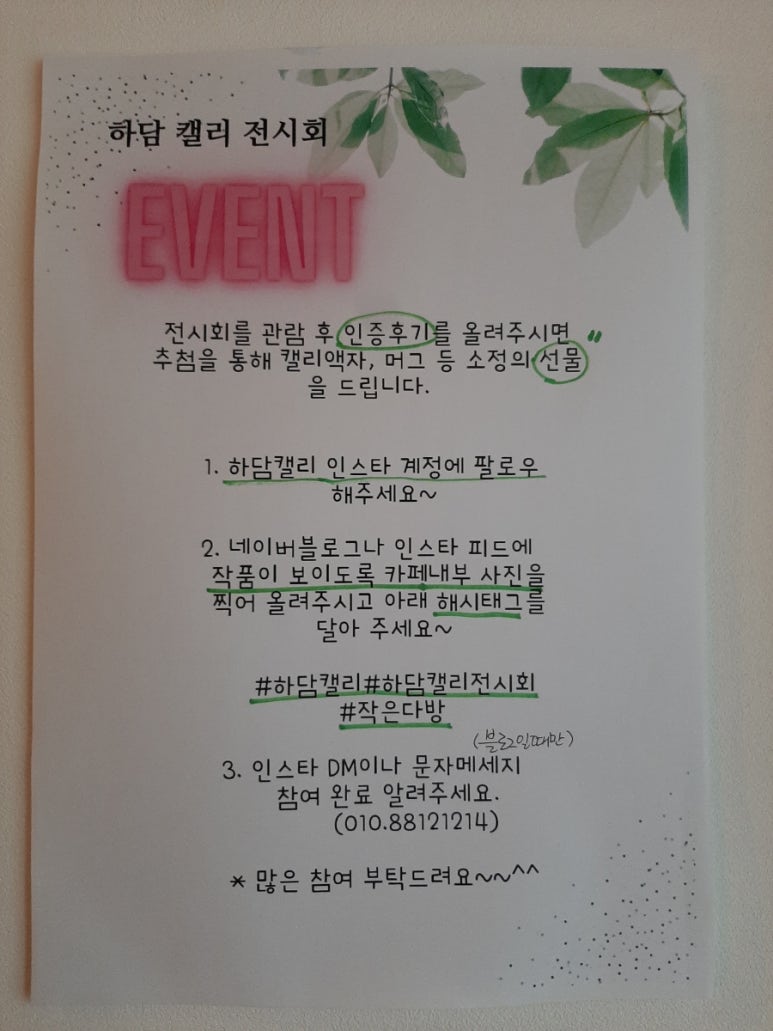 하담 캘리 전시회
EVENT
전시회를 관람 후 인증후기를 올려주시면 "
추첨을 통해 캘리액자, 머그 등 소정의 선물
을 드립니다.
1. 하담캘리 인스타 계정에 팔로우
해주세요~
2. 네이버블로그나 인스타 피드에
작품이 보이도록 카페내부 사진을
찍어 올려주시고 아래 해시태그를
달아 주세요~
#하담캘리#하담캘리전시회
#작은다방
(블로그일때만)
3. 인스타 DM이나 문자메세지
참여 완료 알려주세요.
(010.88121214)
* 많은 참여 부탁드려요~~^^